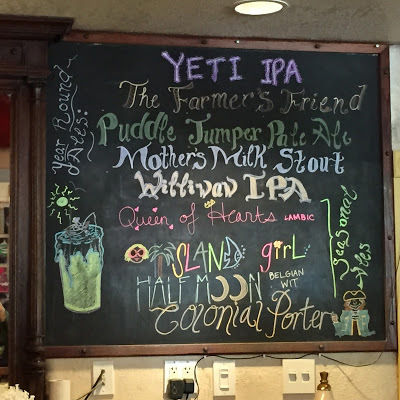 YETI IPA
The Farmer's Friend
Puddle Jumper Pale Ale
Mother's Milk Stout
Willivav IPA
Queen of Hearts LAMBIC
ISLAND giRL
HALF MOON BELGIAN WIT
Colonial Porter
Year Round Ales:
Seasonal Ales